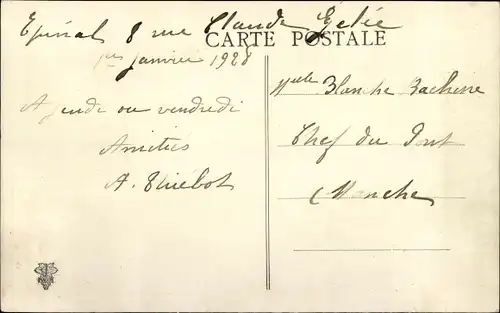 Epinal 8 rue Claude Gelée
CARTE POSTALE
1er Janvier 1928
A jeudi ou vendredi
Amitiés
A. Thiébot
Mlle Blanche
Chef du Pont
Manche